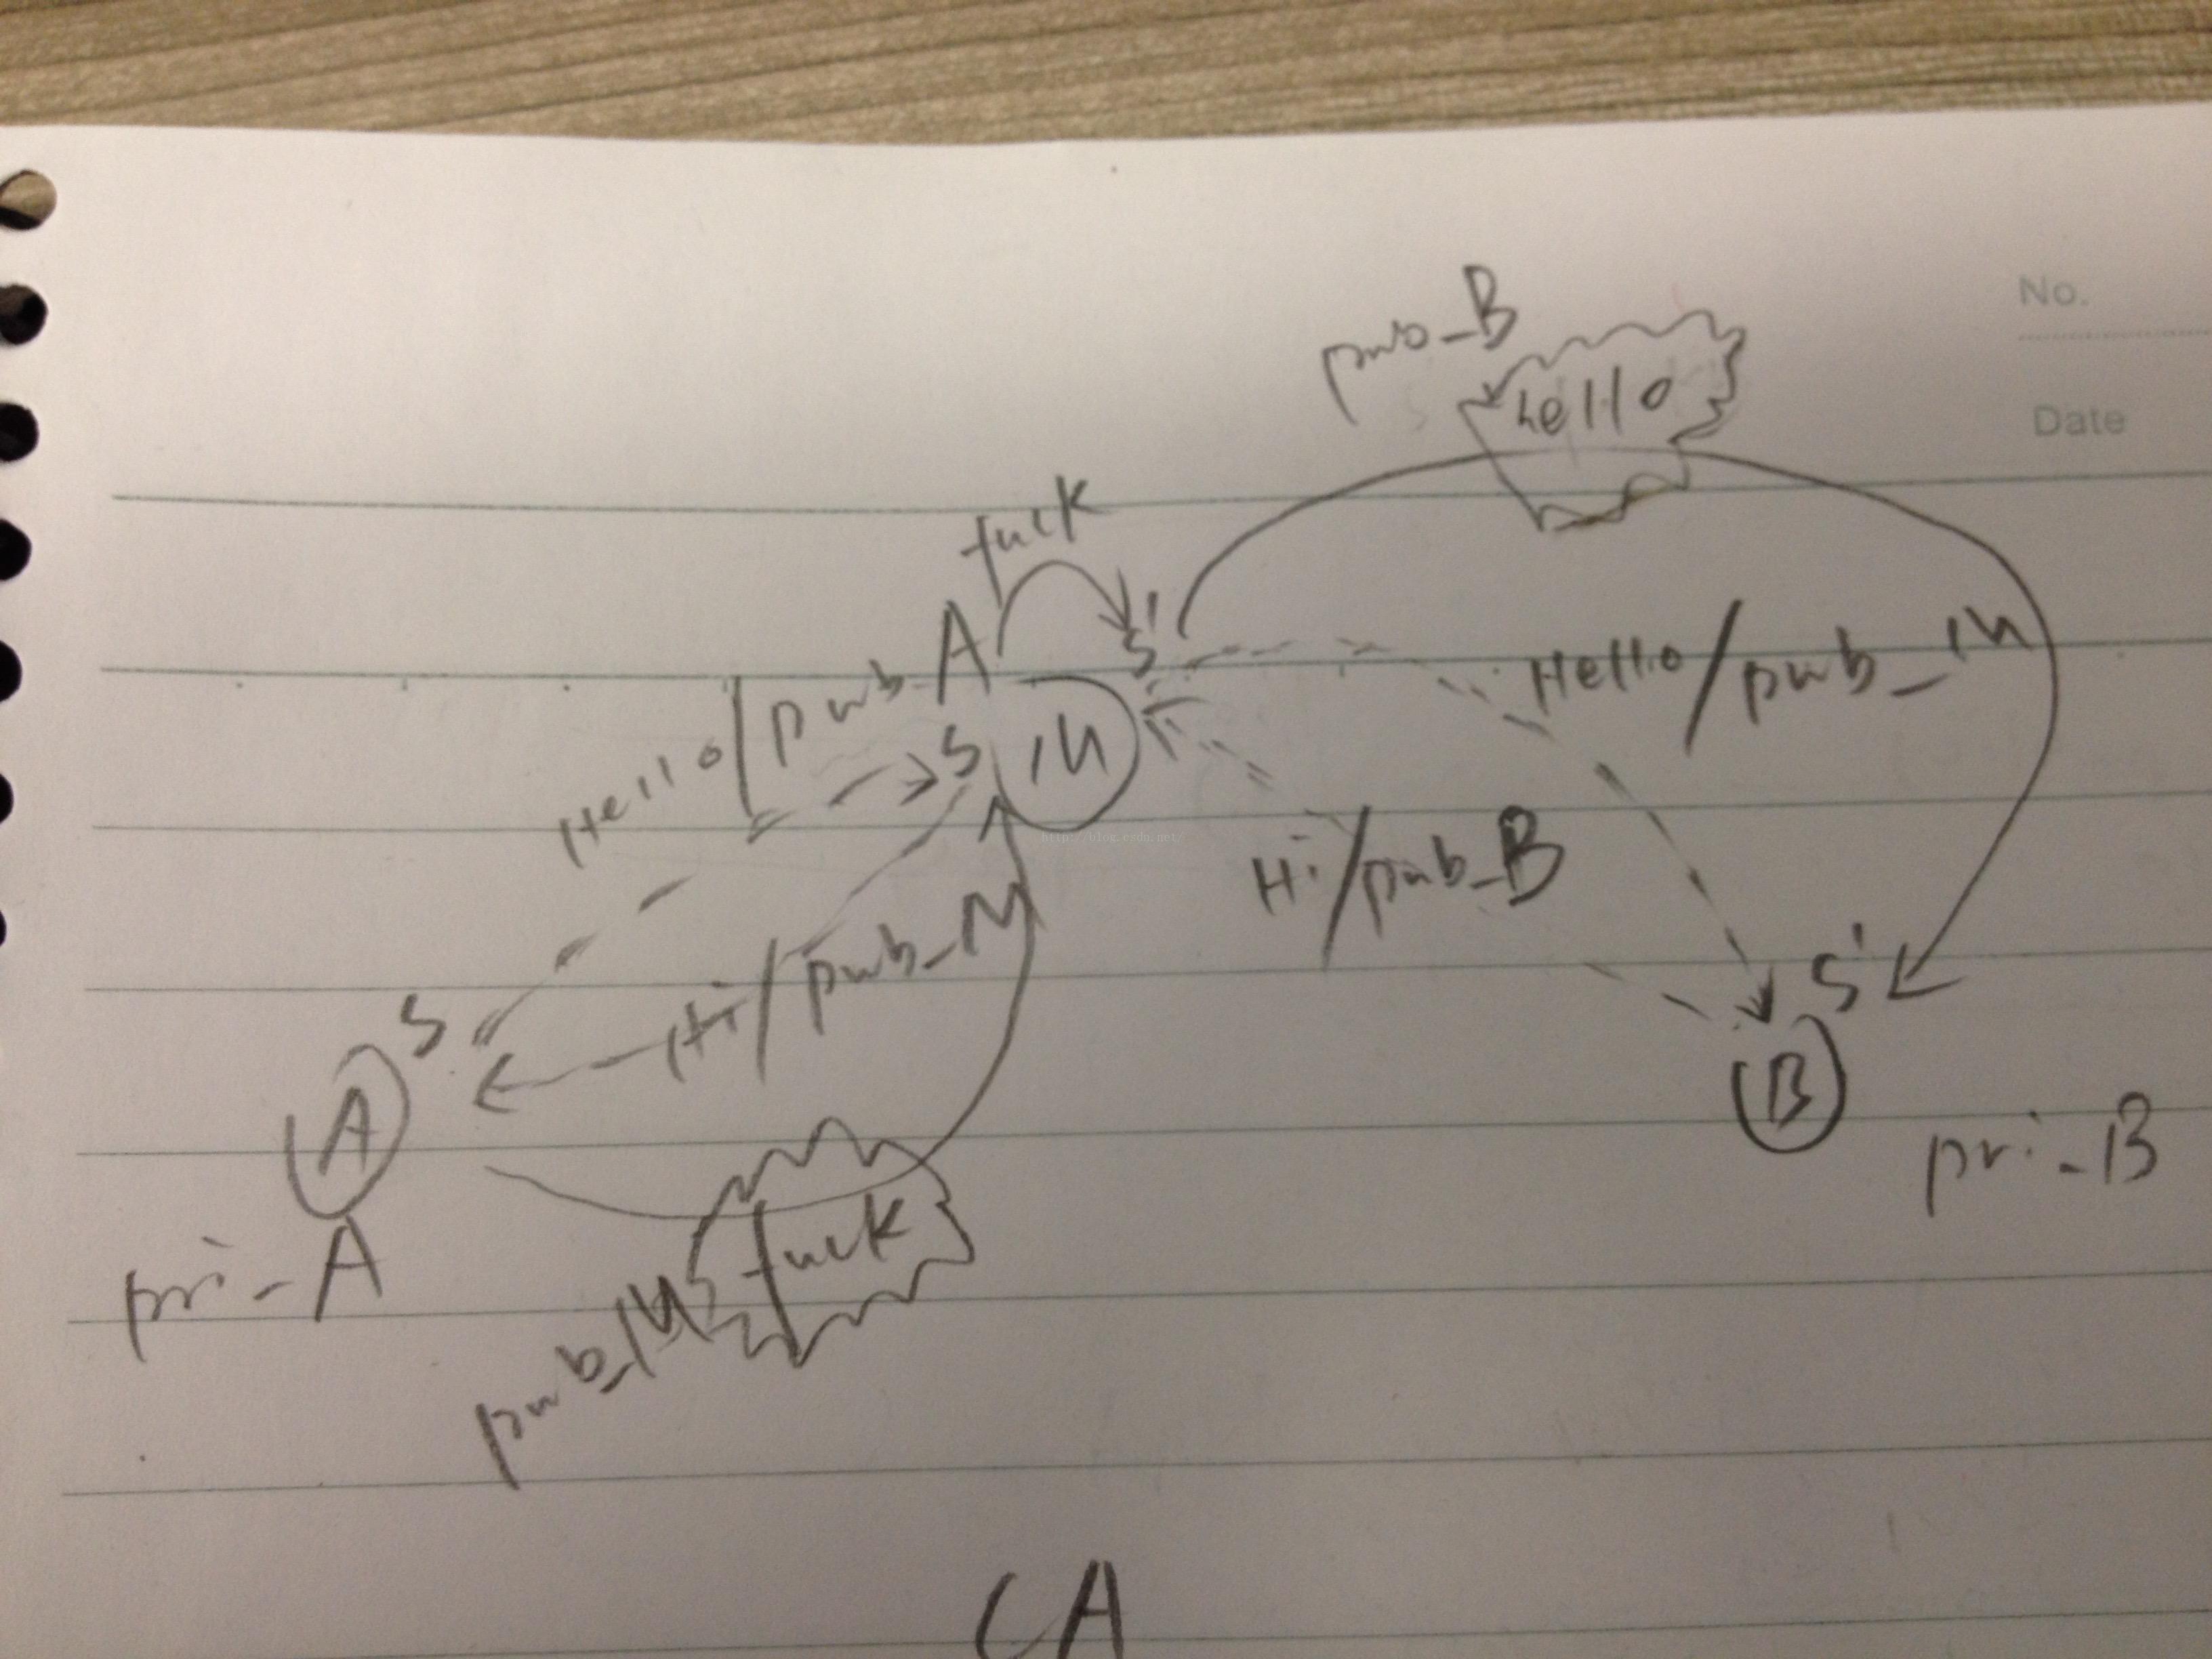 No.
Date
pub_B
hello
fuck
S'
Hello/pub_A
Hello/pub_M
S
M
http://blog.csdn.net/
Hi/pub_B
Hi/pub_M
S
S'
A
B
pri_A
pri_B
pub_M
fuck
CA